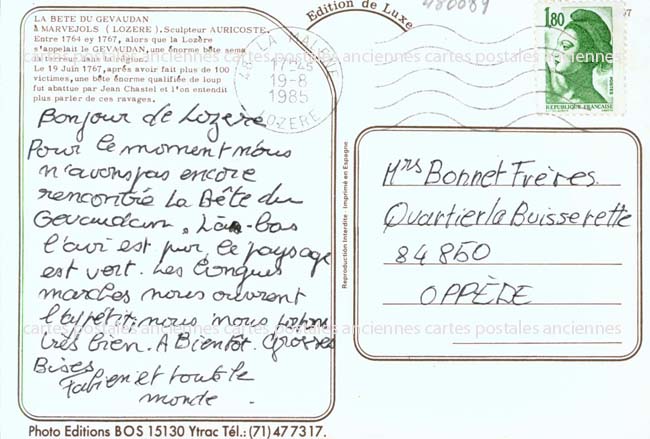 LA BETE DU GEVAUDAN
à MARVEJOLS ( LOZERE ). Sculpteur AURICOSTE.
Entre 1764 ey 1767, alors que la Lozère
s'appelait le GEVAUDAN, une énorme bête sema
la terreur dans la région.
Le 19 Juin 1767, après avoir fait plus de 100
victimes, une bête énorme qualifiée de loup
fut abattue par Jean Chastel et l'on entendit
plus parler de ces ravages.
Bonjour de Lozère
Pour le moment nous
n'avons pas encore
rencontré La Bête du
Gevaudan. Là-bas
l'air est pur, le paysage
est vert. Les longues
marches nous ouvrent
l'appétit, nous nous portons
très bien. A Bientôt. Grosses
Bises
Fabien et tout le
monde.
Photo Editions BOS 15130 Ytrac Tél.: (71) 47 7317.
Edition de Luxe
480089
LA MALENE
17-45
19-8
1985
LOZERE
1,80
POSTES
REPUBLIQUE FRANÇAISE
Reproduction Interdite Imprimé en Espagne
Mrs Bonnet Frères
Quartier la Buisserette
84850
OPPÈDE
cartes postales anciennes cartes postales anciennes cartes postales anciennes